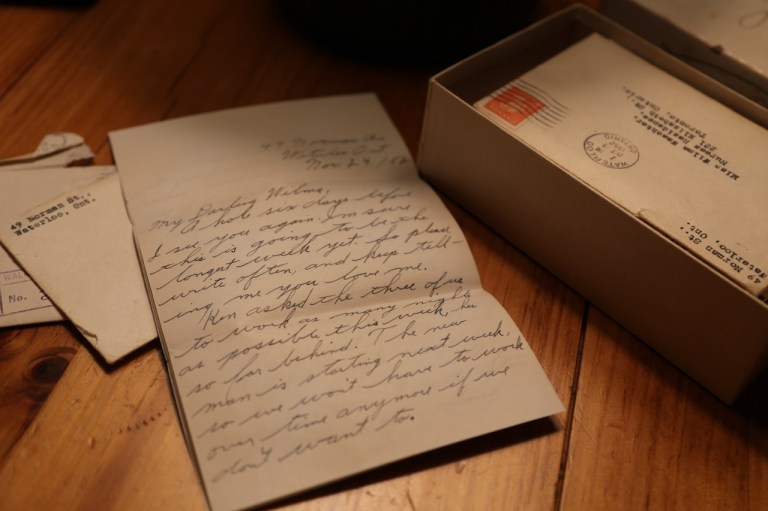 49 Norman St.,
Waterloo, Ont.
No.
49 Norman
Waterloo Ont
Nov. 29/
My Darling Wilma,
A hole six days before
I see you again. I'm sure
this is going to be the
longest week yet. So please
write often, and keep tell-
ing me you love me.
Ken asked the three of us
to work as many nights
as possible this week, he
so far behind. The new
man is starting next week,
so we won't have to work
over time anymore if we
don't want to.
49 Norman St.,
Waterloo, Ont.
WATERLOO
ONTARIO
Miss
Nurses Residence,
Toronto, Ontario.